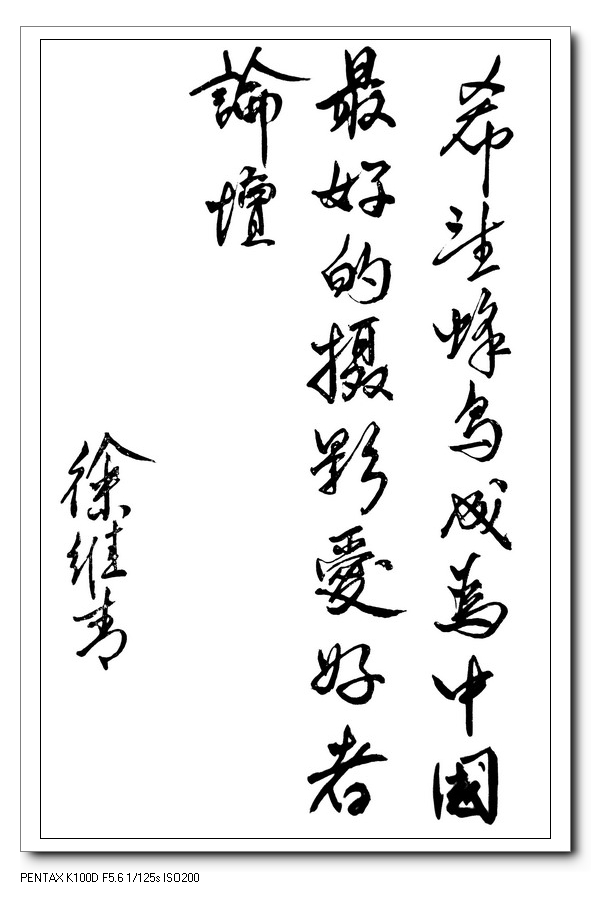 希望蜂鸟成為中國
最好的摄影愛好者
論壇
徐維青
PENTAX K100D F5.6 1/125s ISO200